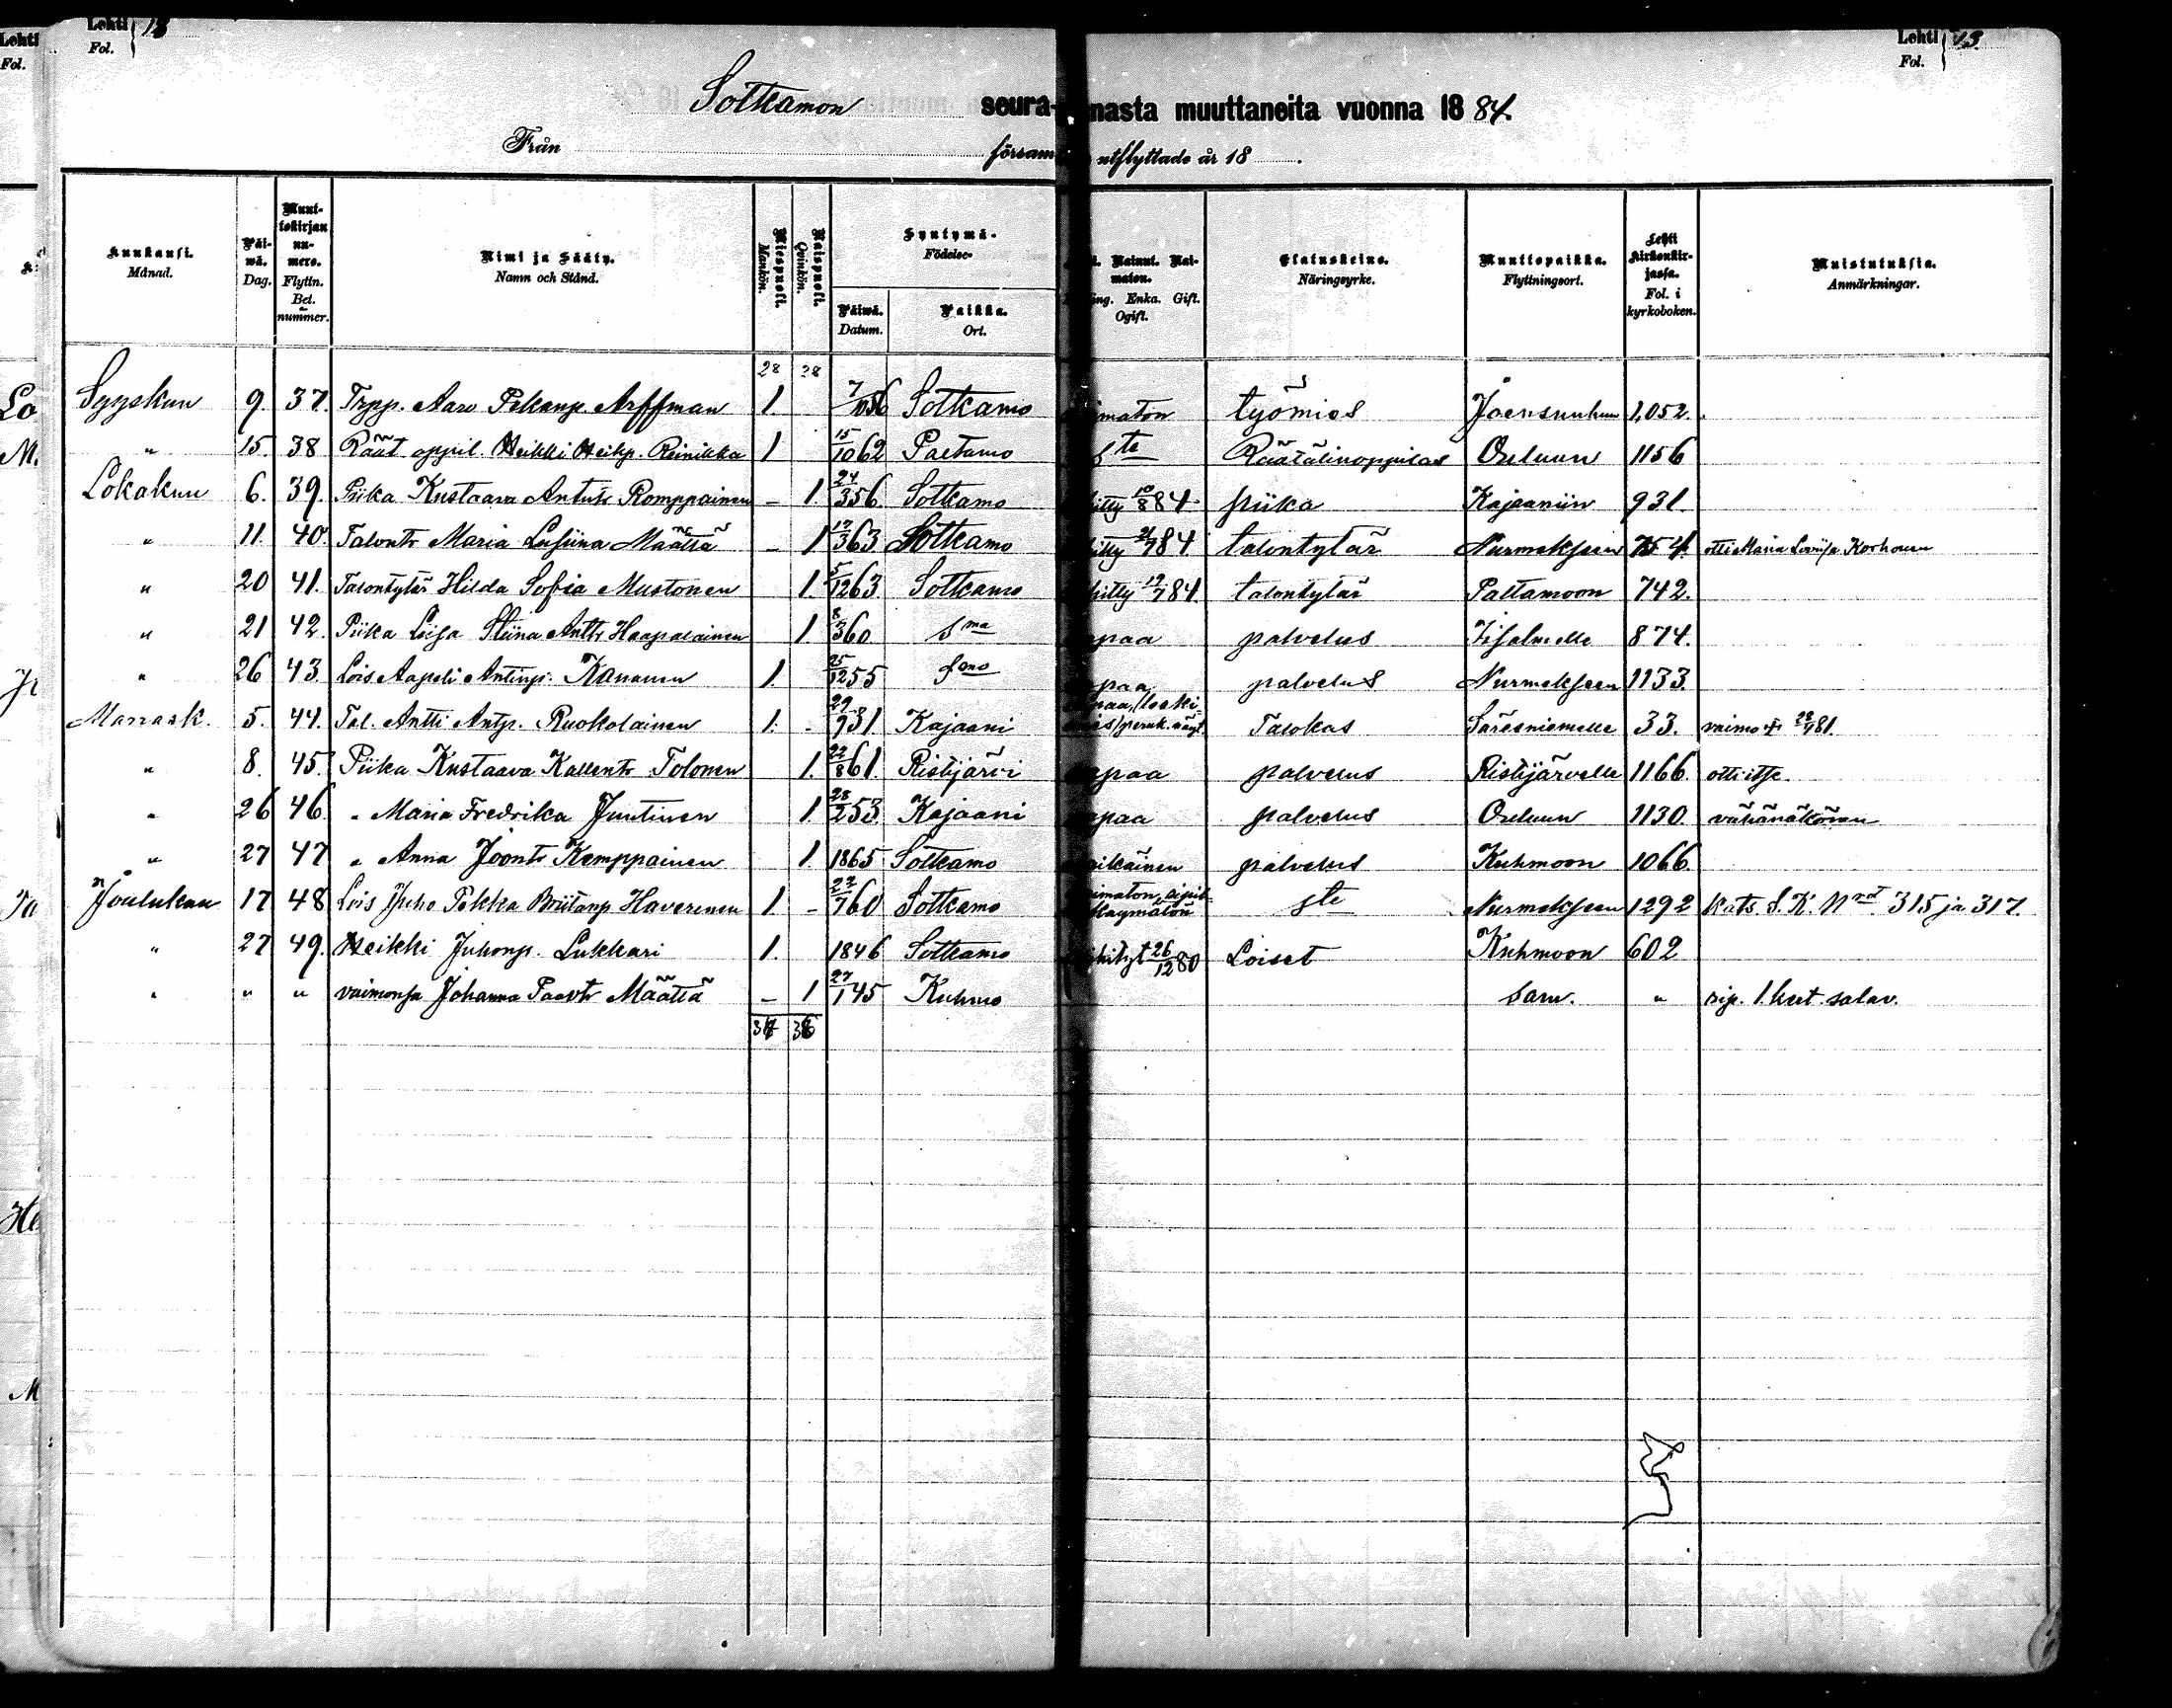 Lehti Fol. 13
Lehti Fol. 13
Sotkamon seura- nasta muuttaneita vuonna 1884.
Från försam utflyttade år 18 .
Kuukausi. Månad. Päi-wä. Dag. Muut-tokirjan nu-mero. Flyttn. Bet. nummer. Nimi ja Sääty. Namn och Stånd. Miespuoli. Mankön. Naispuoli. Qvinkön. Syntymä- Födelse- Päiwä. Datum. Paikka. Ort. Nainut. Nai-maton. Enka. Gift. Ogift. Elatuskeino. Näringsyrke. Muuttopaikka. Flyttningsort. Lehti kirkonkir-jassa. Fol. i kyrkoboken. Muistutuksia. Anmärkningar.
28 28
Syyskun 9. 37. Aaro Pekanp. Arffman 1. 7/10 56 Sotkamo imaton työmies Joensuuhun 1,052.
" 15. 38 Räät. oppil. Heikki Heikp. Reinikka 1 15/10 62 Paltamo ste Räätälinoppilas Ouluun 1156
Lokakun 6. 39. Piika Kustaava Antintr Romppainen – 1. 24/3 56. Sotkamo hitty 10/8 84 piika Kajaaniin 931.
" 11. 40. Talontr Maria Lusiina Määttä – 1 17/3 63 Sotkamo hitty 784 talontytär Nurmekseen 754. otti Maria Loviisa Korhonen
" 20 41. Talontytär Hilda Sofia Mustonen 1. 5/12 63 Sotkamo hitty 19/7 84. talontytär Paltamoon 742.
" 21 42. Piika Leisa Stiina Anttr Haapalainen 1 8/3 60 sma apaa palvelus Iisalmelle 874.
" 26 43. Lois. Aapeli Antinp. Kananen 1. 25/12 55 paa palvelus Nurmekseen 1133.
Marrask. 5. 44. Tal. Antti Antp. Ruokolainen 1. - 29/9 31. Kajaani leski Talokas Säresniemelle 33. vaimo † 81.
" 8. 45. Piika Kustaava Kallentr Tolonen 1. 22/8 61. Ristijärvi apaa palvelus Ristijärvelle 1166. otti itse.
" 26 46. " Maria Fredrika Juntinen 1. 28/2 53. Kajaani apaa palvelus Ouluun 1130. vähänäköinen
" 27 47 " Anna Joontr Kemppainen 1. 1865 Sotkamo ikäinen palvelus Kuhmoon 1066.
Joulukun 17 48 Lois Juho Pekka Haverinen 1. – 22/7 60 Sotkamo imaton, ste Nurmekseen 1292 kats. S.K. Nrot 315 ja 317.
" 27 49. Heikki Juhonp. Lukkari 1. 1846 Sotkamo ihityt 26/12 80 Loiset Kuhmoon 602
" " " vaimonsa Johanna Paavtr Määttä – 1 27/1 45 Kuhmo sam. " rip. 1. kert. salav.